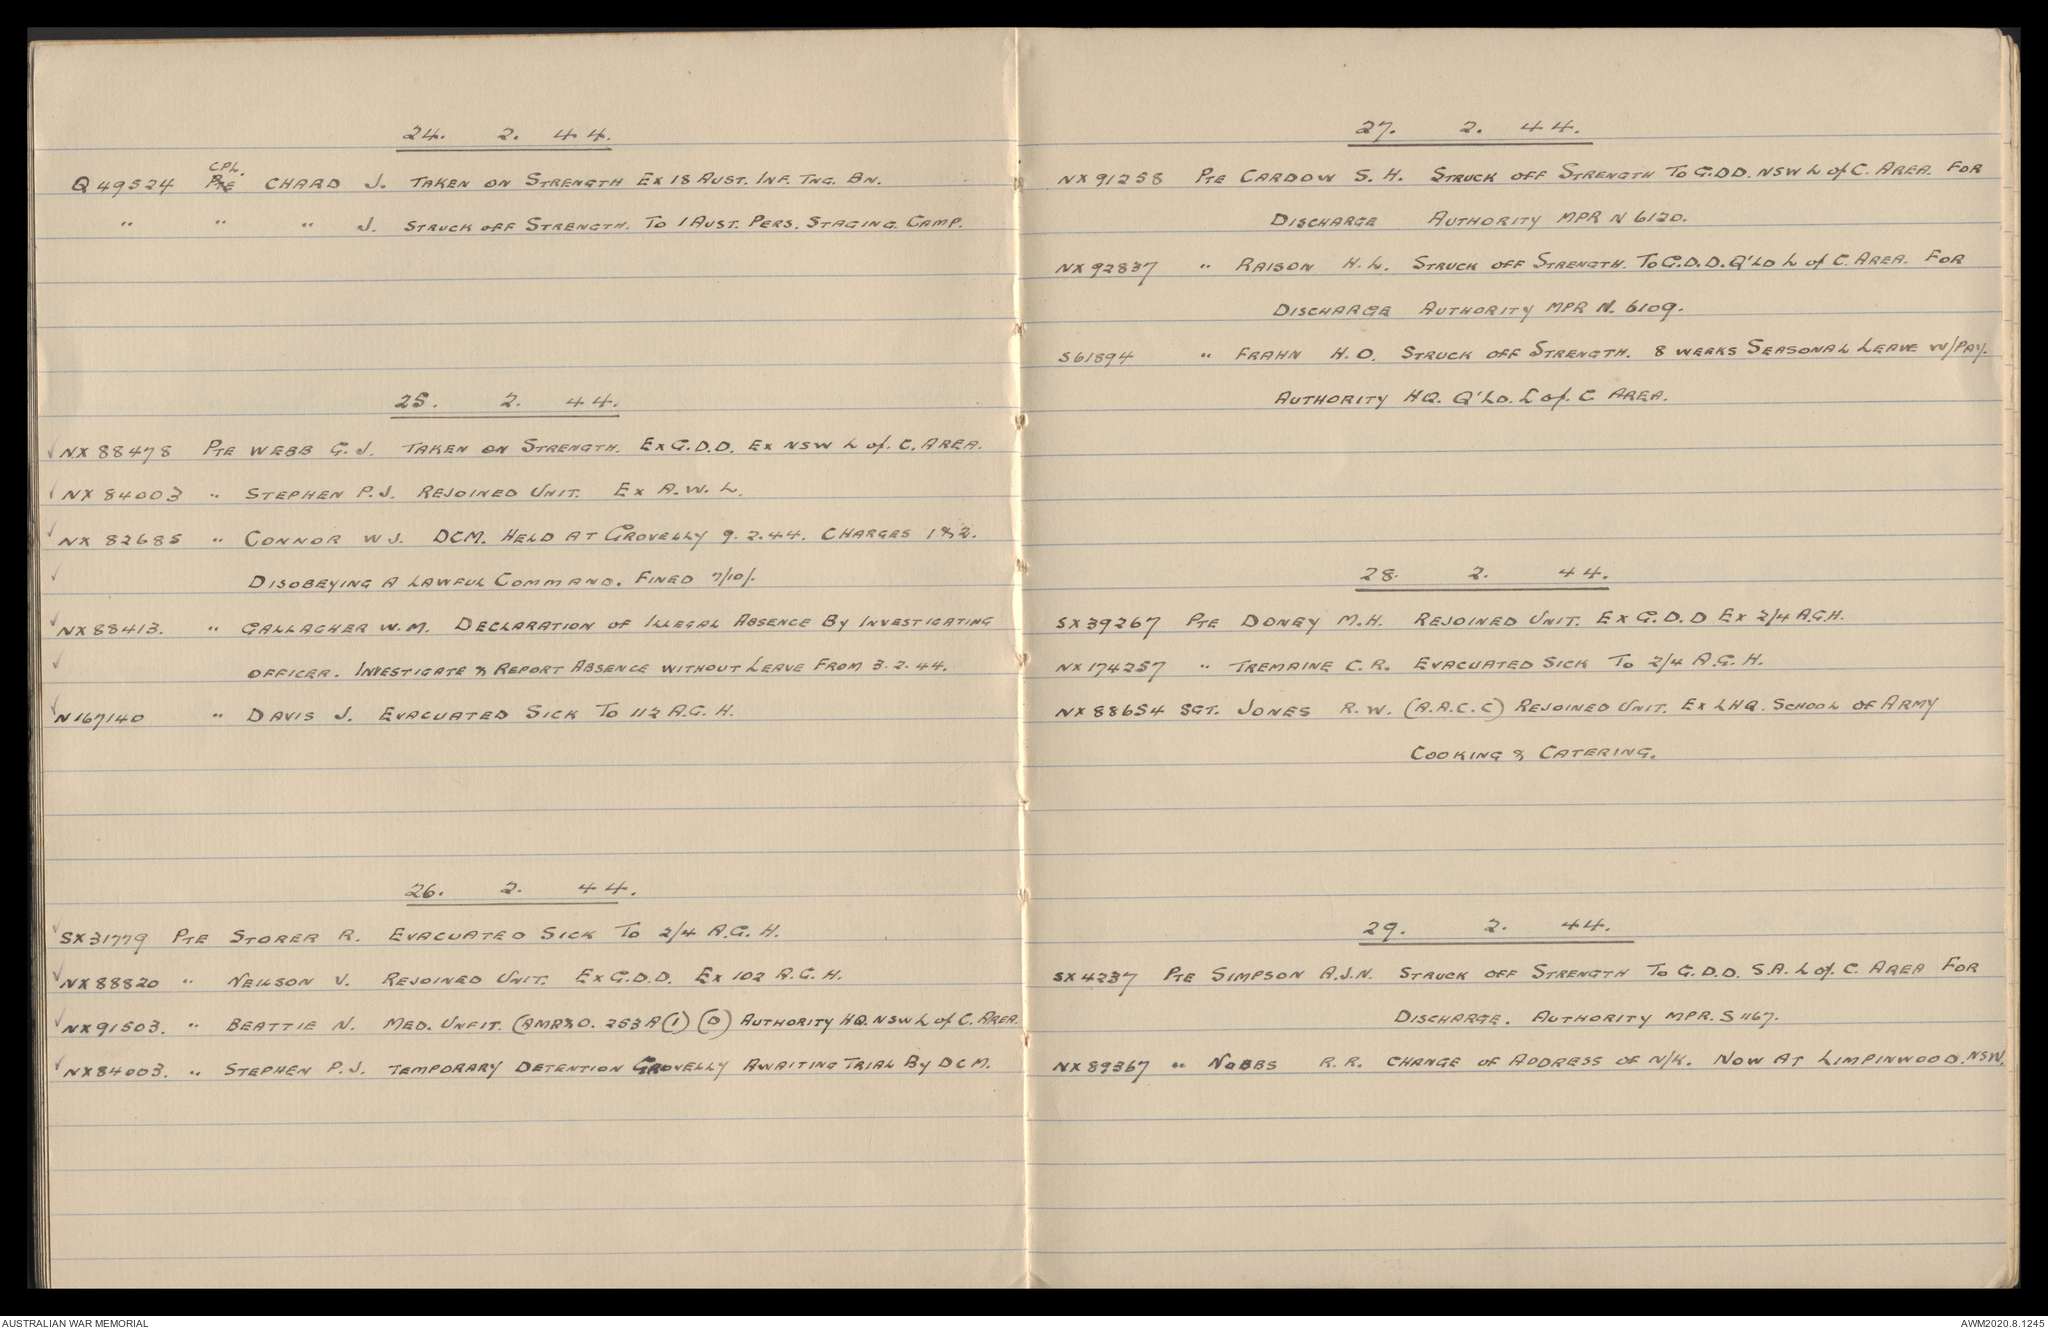 24. 2. 44.
CPL.
Q49524 Pte CHARD J. TAKEN ON STRENGTH EX 18 AUST. INF. TNG. BN.
" " " J. STRUCK OFF STRENGTH. TO 1 AUST. PERS. STAGING CAMP.
25. 2. 44.
NX88478 PTE WEBB G. J. TAKEN ON STRENGTH. EX G.D.D. EX NSW L of. C. AREA.
NX84003 " STEPHEN P.J. REJOINED UNIT. EX A.W.L.
NX 82685 " CONNOR W J. DCM. HELD AT GROVELLY 9.2.44. CHARGES 1 & 2.
DISOBEYING A LAWFUL COMMAND. FINED 7/10/.
NX88413. " GALLAGHER W.M. DECLARATION OF ILLEGAL ABSENCE BY INVESTIGATING
OFFICER. INVESTIGATE & REPORT ABSENCE WITHOUT LEAVE FROM 3.2.44.
N167140 " DAVIS J. EVACUATED SICK TO 112 A.G.H.
26. 2. 44.
SX31779 PTE STORER R. EVACUATED SICK TO 2/4 A.G.H.
NX88820 " NEILSON V. REJOINED UNIT. EX G.D.D. EX 102 A.G.H.
NX91503. " BEATTIE N. MED. UNFIT. (AMR&O. 253A(1) (D) AUTHORITY HQ. NSW L of C. AREA.
NX84003. " STEPHEN P.J. TEMPORARY DETENTION GROVELLY AWAITING TRIAL BY DCM.
27. 2. 44.
NX91258 PTE CARDOW S. H. STRUCK OFF STRENGTH TO G.DD. NSW L of C. AREA. FOR
DISCHARGE AUTHORITY MPR N 6120.
NX92837 " RAISON H. L. STRUCK OFF STRENGTH. TO G.D.D. Q'LD L of C. AREA. FOR
DISCHARGE AUTHORITY MPR N. 6109.
S61894 " FRAHN H.O. STRUCK OFF STRENGTH. 8 WEEKS SEASONAL LEAVE W/PAY.
AUTHORITY HQ. Q'LD. L of. C AREA.
28. 2. 44.
SX39267 PTE DONEY M.H. REJOINED UNIT. EX G.D.D EX 2/4 A.G.H.
NX174257 " TREMAINE C.R. EVACUATED SICK TO 2/4 A.G.H.
NX88654 SGT. JONES R.W. (A.A.C.C) REJOINED UNIT. EX LHQ. SCHOOL OF ARMY
COOKING & CATERING.
29. 2. 44.
SX4237 PTE SIMPSON A.J.N. STRUCK OFF STRENGTH TO G.D.D. S.A. L of. C. AREA FOR
DISCHARGE. AUTHORITY MPR. S 1167.
NX89367 " NOBBS R.R. CHANGE OF ADDRESS OF N/K. NOW AT LIMPINWOOD. NSW.
AUSTRALIAN WAR MEMORIAL
AWM2020.8.1245